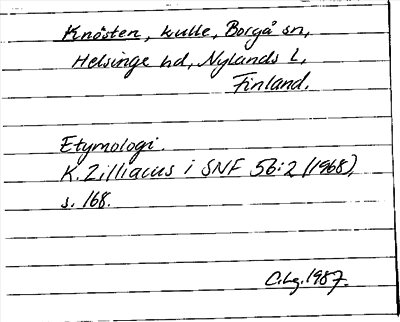 Knösten, kulle, Borgå sn,
Helsinge hd, Nylands l,
Finland.
Etymologi.
K. Zilliacus i SNF 56:2 (1968),
s. 168.
C.Lg. 1987.